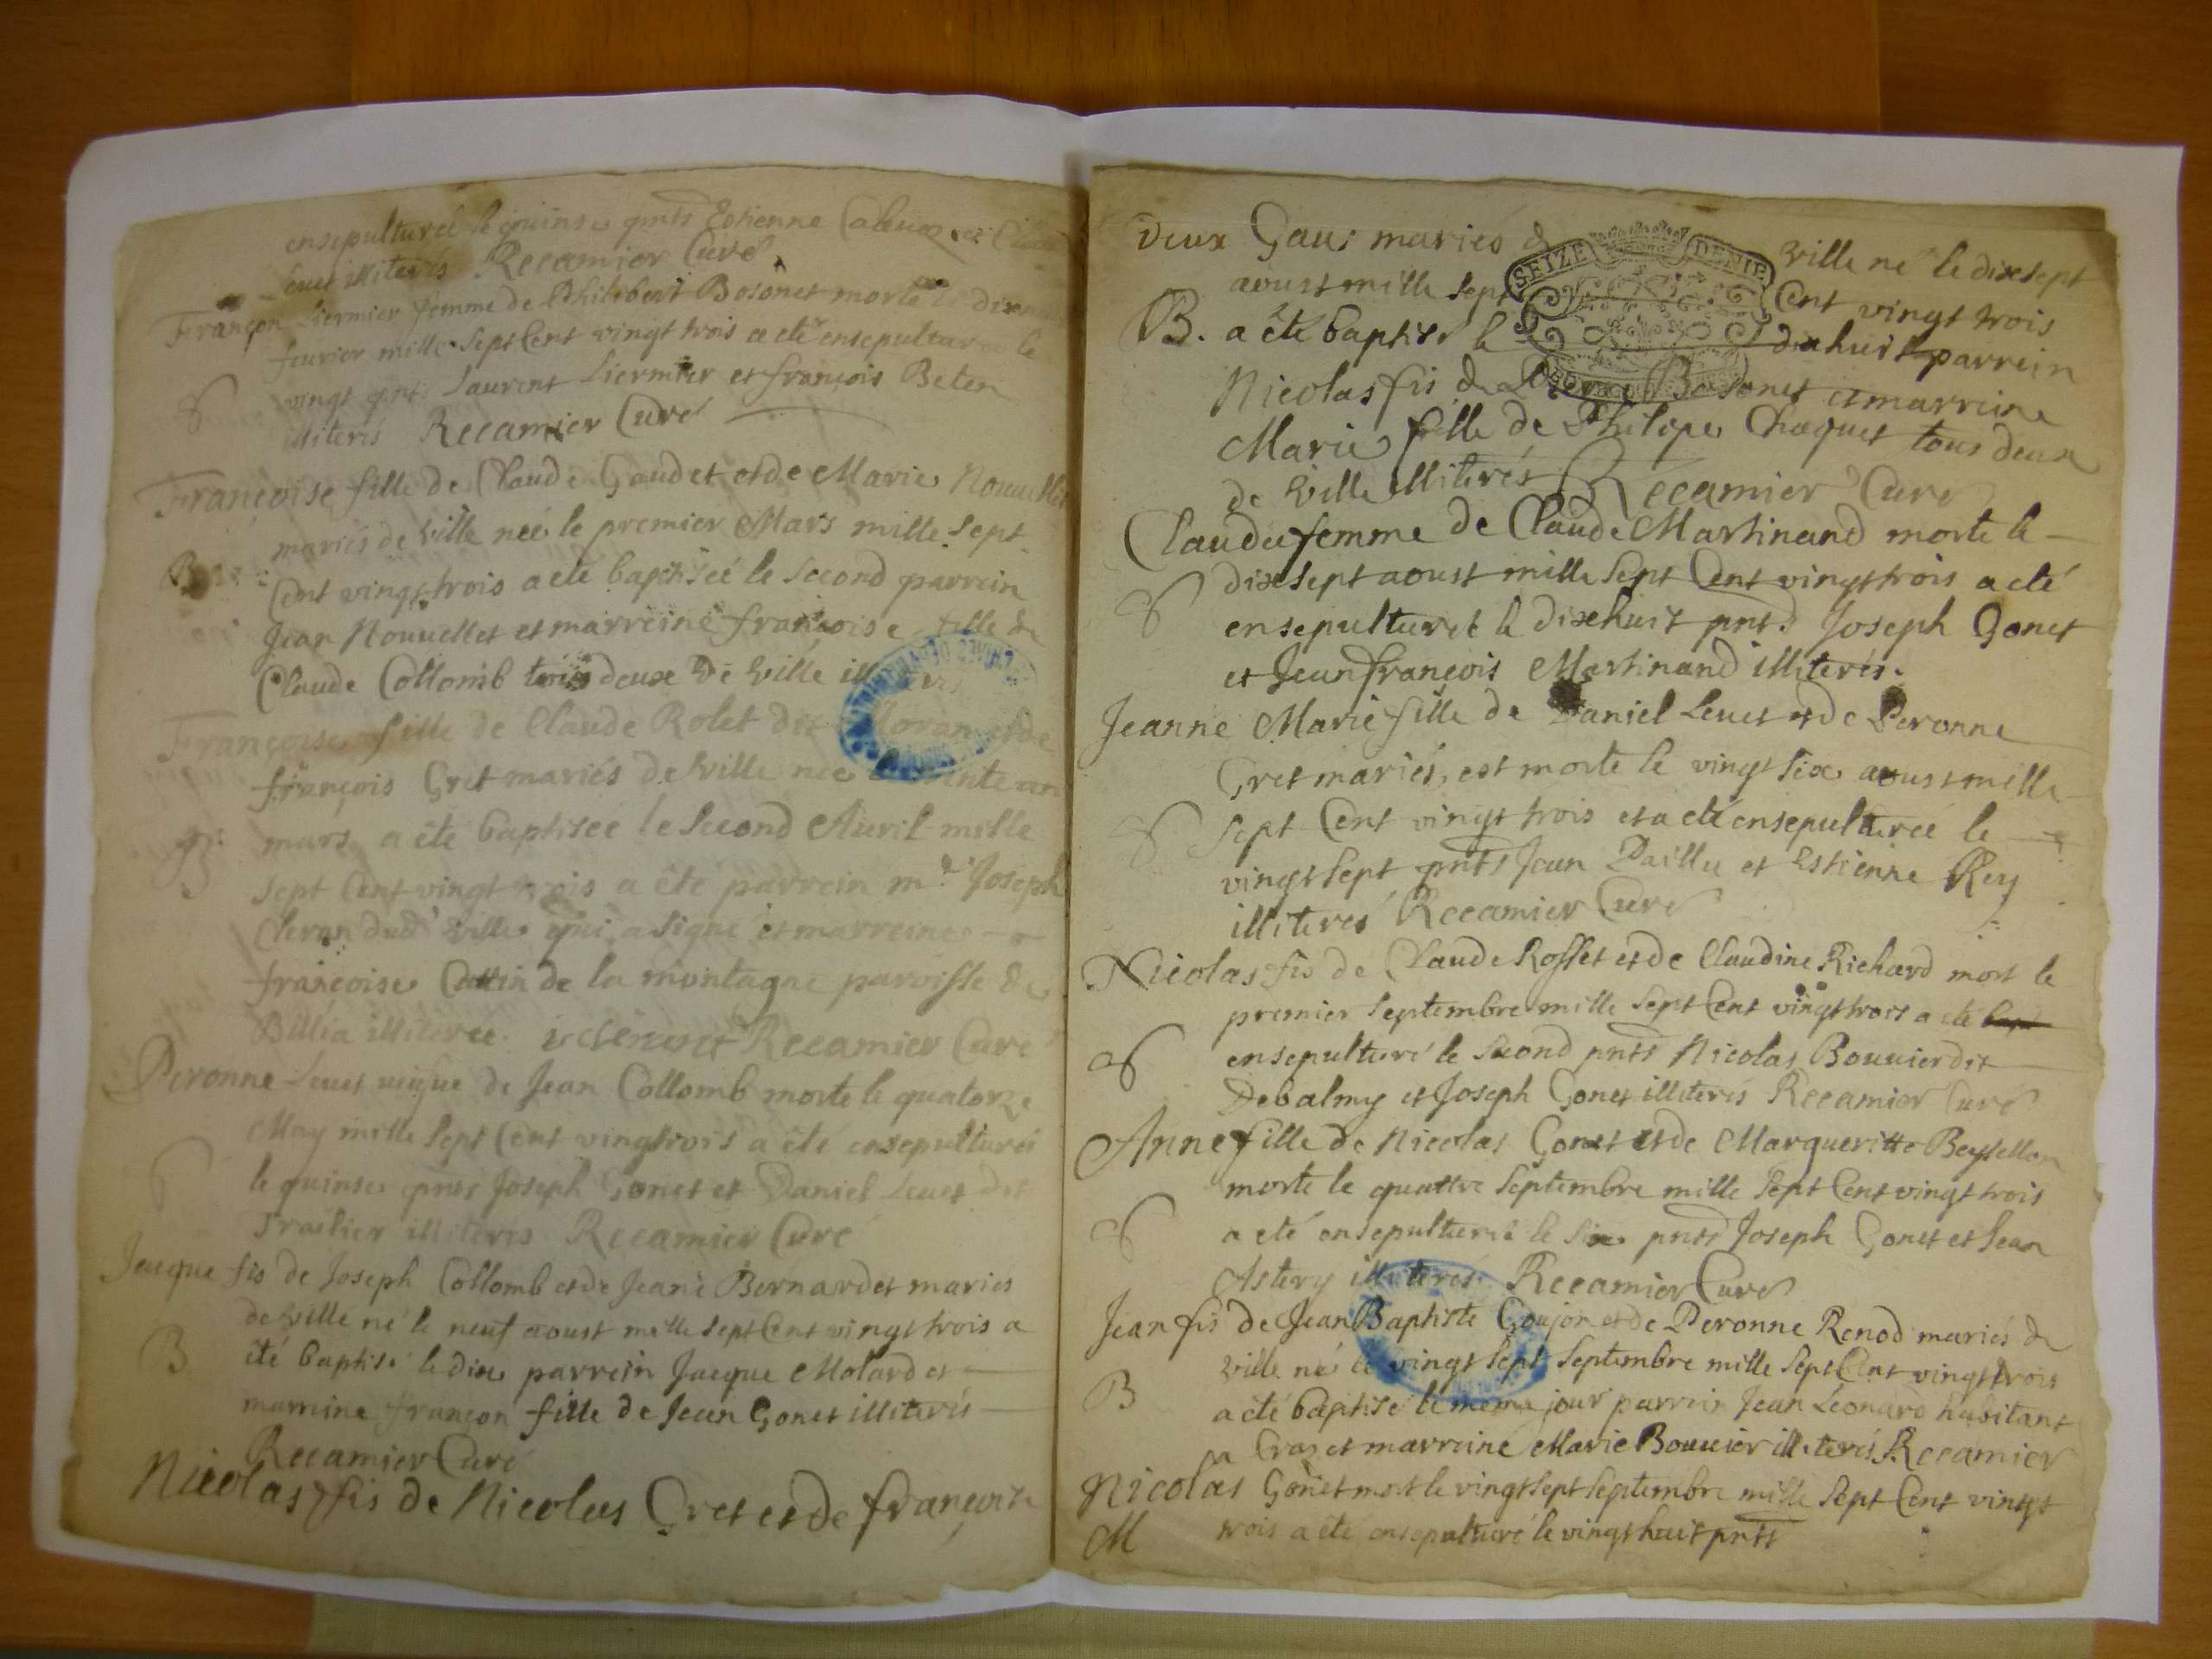 ensepulturéé le quinse pnts Estienne
Leuet illiterés Recamier Curé
Françon Liermier femme de Philibert Bosonet morte le
feurier mille Sept Cent vingt trois a eté ensepulturéé le
vingt pnts Laurent Liermier et françois Beten
illiterés Recamier Curé
Françoise fille de Claude Gaudet et de Marie Nouuellet
mariés de Ville néé le premier Mars mille Sept
B
Cent vingt trois a eté baptiséé le Second parrein
Jean Nouuellet et marreine françoise fille de
Claude Collomb tous deux De Ville
Françoise fille de Claude Rolet dit Moran et de
françois Gret mariés de Ville néé
mars a êté baptiséé le Second Auril mille
B
Sept Cent vingt trois a êté parrein mr Joseph
Cleran dud Ville qui a signé et marreine
françoise de la montagne paroisse de
Billia illiteréé. Recamier Curé
Peronne Leuet de Jean Collomb morte le quatorze
May mille Sept Cent vingt trois a êté ensepulturéé
le quinse pnts Joseph Gonet et Daniel Leuet dit
illiterés Recamier Curé
Jacque fis de Joseph Collomb et de Jeane Bernardet mariés
de Ville né le neuf aoust mille Sept Cent vingt trois a
B
êté baptisé le dix parrein Jacque Molard et
marreine françon fille de Jean Gonet illiterés
Recamier Curé
Nicolas fis de Nicolas Gret et de françoise
deux Gaus mariés Ville né le dixsept
SEIZE DENIE
aoust mille Sept Cent vingt trois
B. a êté baptisé le dixhuit parrein
Nicolas fis de Bosonet et marreine
Marie fille de Philipe Chaquet tous deux
de Ville illiterés Recamier Curé
Claudee femme de Claude Martinand morte le
dixsept aoust mille Sept Cent vingt trois a eté
ensepulturéé le dixhuit pnts Joseph Gonet
et Jeanfrançois Martinand illiterés.
Jeanne Marie fille de Daniel Leuet et de Peronne
Gret mariés, est morte le vingt six aoust mille
Sept Cent vingt trois et a eté ensepulturéé le
vingt Sept pnts Jean Daillu et Estienne Rey
illiterés Recamier Curé
Nicolas fis de Claude Rosset et de Claudine Richard mort le
premier Septembre mille Sept Cent vingt trois a eté
ensepulturé le Second pnts Nicolas Bouuier dit
Debalmy et Joseph Gonet illiterés Recamier Curé
Anne fille de Nicolas Gonet et de Margueritte Beysellon
morte le quattre Septembre mille Sept Cent vingt trois
a eté ensepulturéé le Six pnts Joseph Gonet et Jean
Astery illiterés Recamier Curé
Jean fis de Jean Baptiste Goujon et de Peronne Renod mariés de
Ville né le vingt Sept Septembre mille Sept Cent vingt trois
B
a eté baptisé le même jour parrein Jean Léonard habitant
a Craz et marreine Marie Bouuier illiterés Recamier
Nicolas Gonet mort le vingt Sept Septembre mille Sept Cent vingt
M
trois a êté ensepulturé le vingt huit pnts